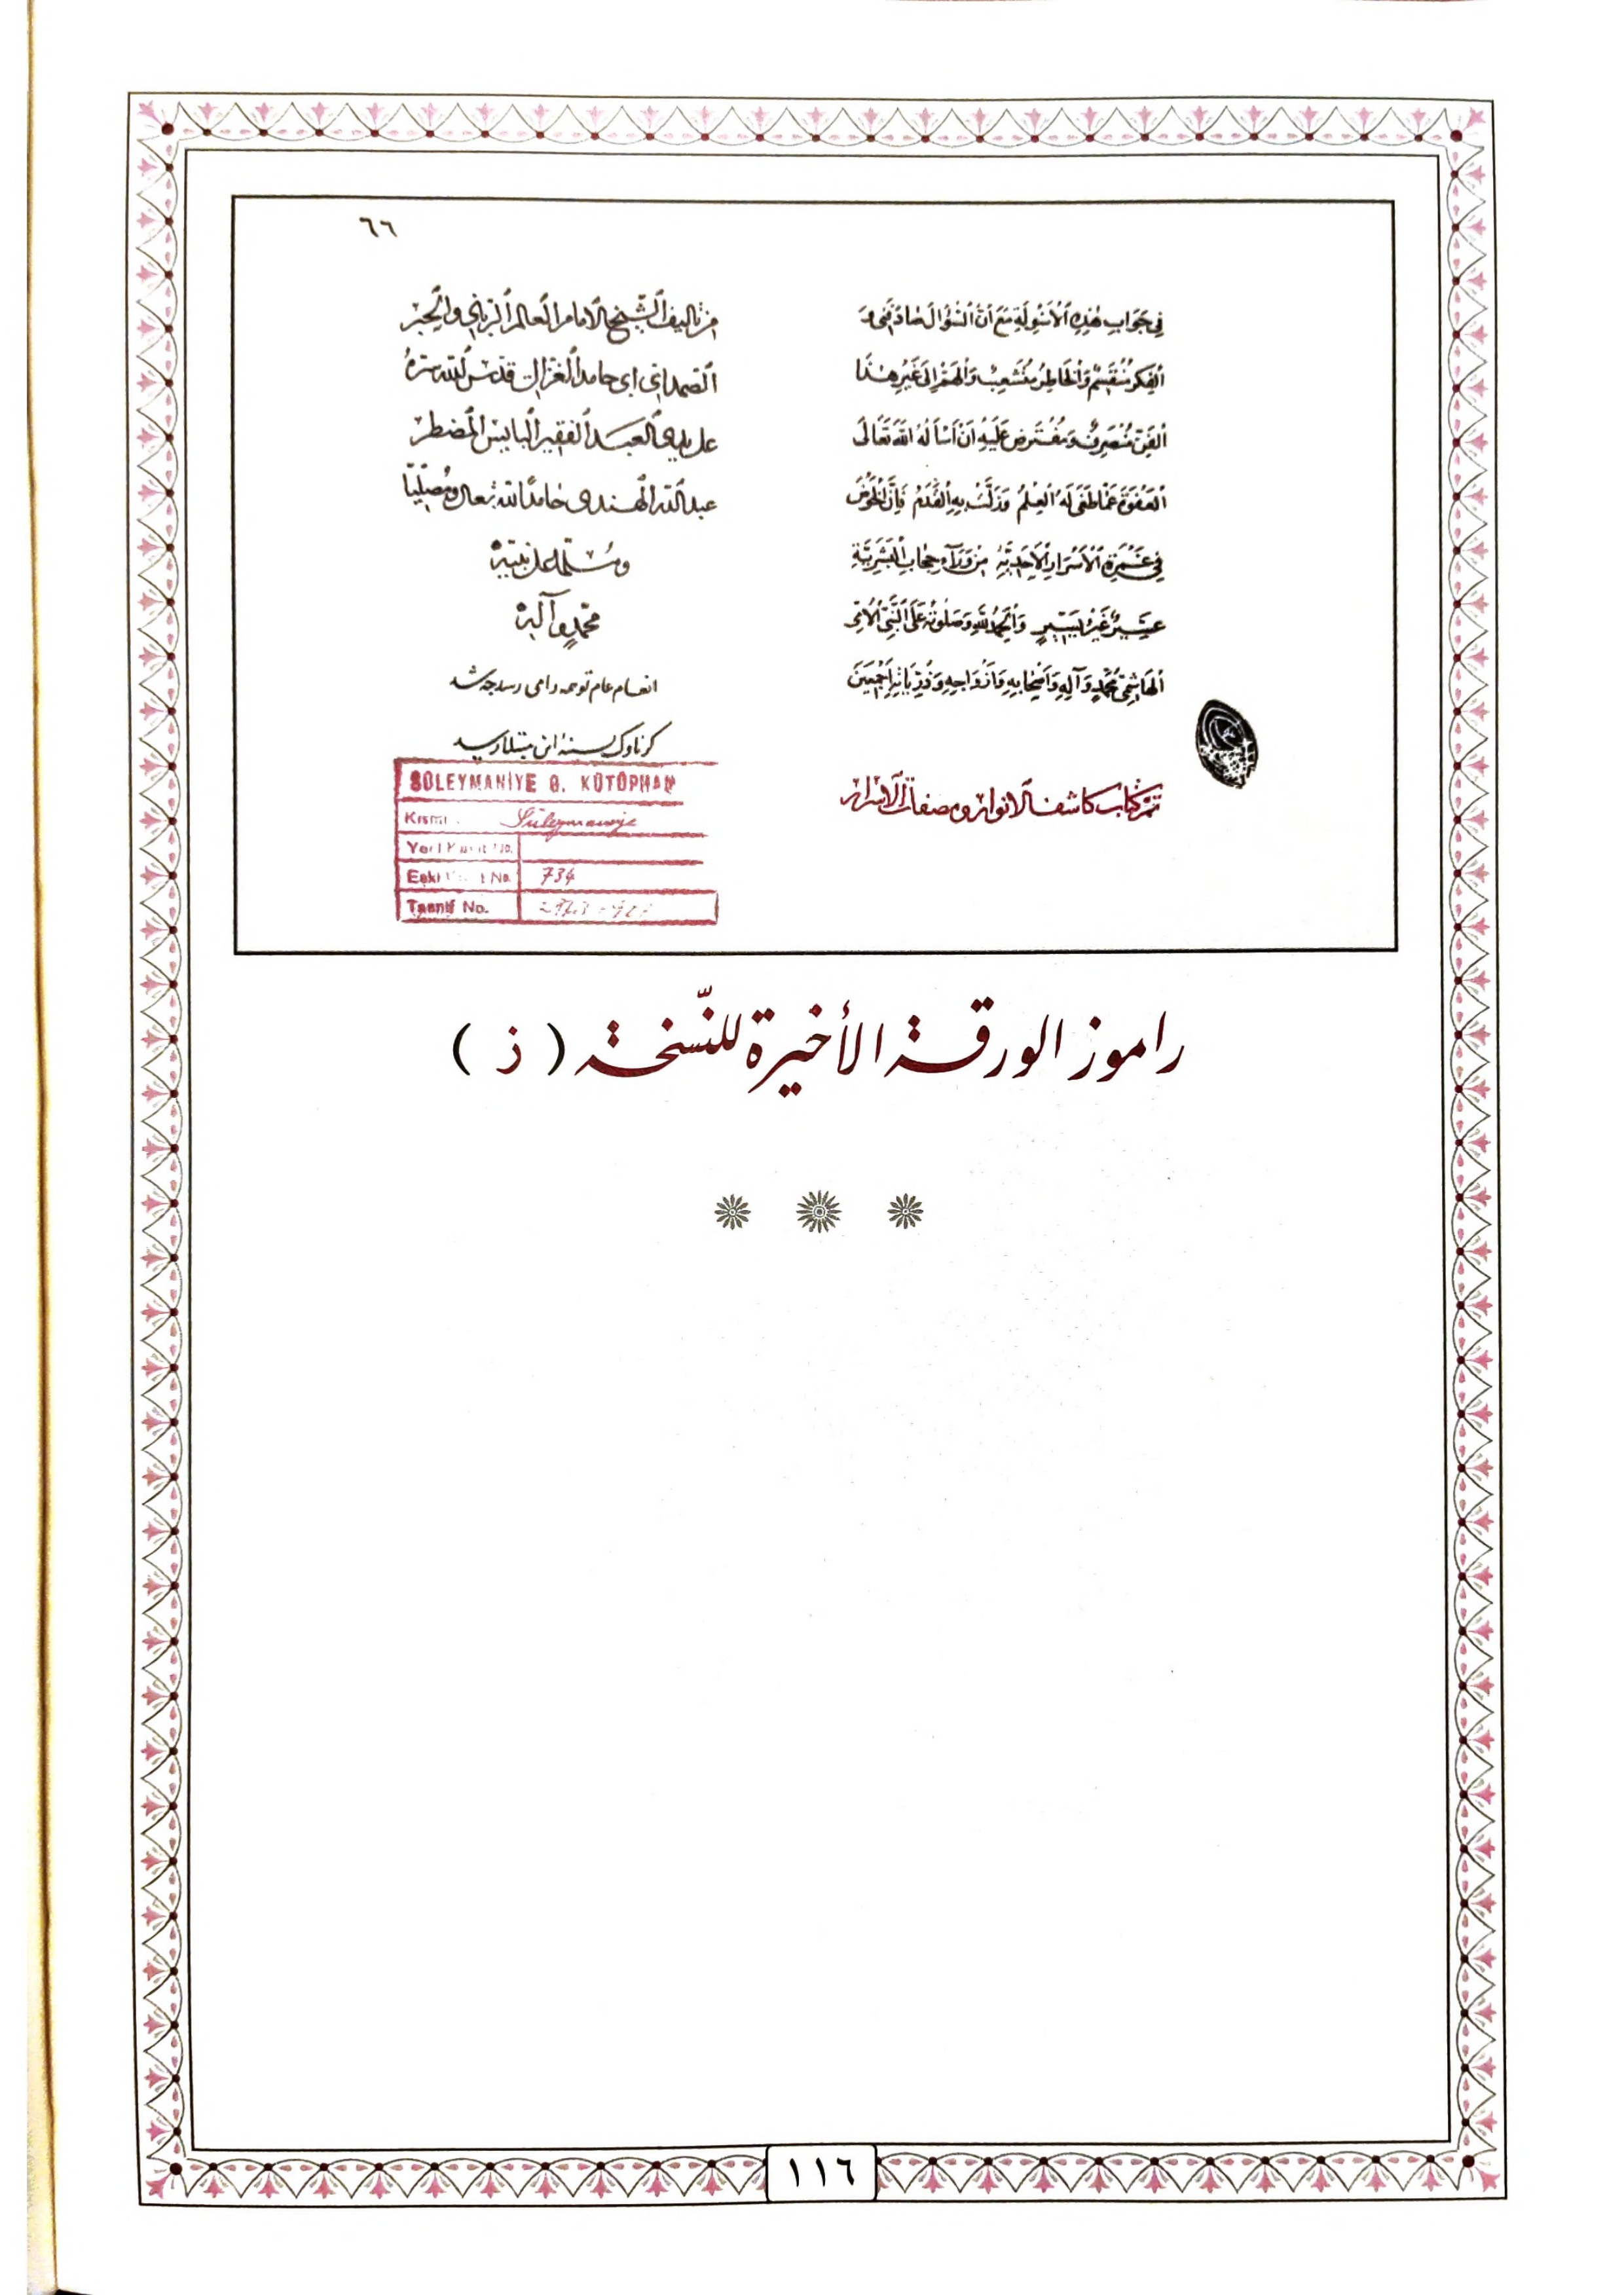 ٦٦
في جَوَابِ هٰذِهِ ٱلْأَسْوِلَةِ مَعَ أَنَّ ٱلسُّؤَالَ صَادَفَنِي وَ
ٱلْفِكْرُ مُنْقَسِمٌ وَٱلْخَاطِرُ مُتَشَعِّبٌ وَٱلْهَمُّ إِلَى غَيْرِ هٰذَا
ٱلْفَنِّ مُنْصَرِفٌ وَمُقْتَرِحِي عَلَيْهِ أَنْ أَسْأَلَهُ ٱللّٰهَ تَعَالَى
ٱلْعَفْوَ عَمَّا طَغَى لَهُ ٱلْعِلْمُ وَزَلَّتْ بِهِ ٱلْقَدَمُ فَإِنَّ ٱلْخَوْضَ
فِي غَمْرَةِ ٱلْأَسْرَارِ ٱلْأَحَدِيَّةِ مِنْ وَرَآءِ حِجَابِ ٱلْبَشَرِيَّةِ
عَسِيرٌ غَيْرُ يَسِيرٍ وَٱلْحَمْدُ لِلّٰهِ وَصَلٰوتُهُ عَلَى ٱلنَّبِيِّ ٱلْأُمِّيِّ
ٱلْهَاشِمِيِّ مُحَمَّدٍ وَآلِهِ وَأَصْحَابِهِ وَأَزْوَاجِهِ وَذُرِّيَّاتِهِ أَجْمَعِينَ
تمّ كتاب كاشف الانوار ومصفات الاسرار
من تاليف الشيخ الامام العالم الرباني والحبر
الصمداني ابى حامد الغزالى قدّس الله سرّه
على يدى العبد الفقير البايس المضطر
عبد الله الهندى حامدًا لله تعالى ومُصلّيًا
ومُسلّما على نبيّه
محمّدٍ وآله
انعام عام تو همه را مى رسد چه شد
SÜLEYMANİYE G. KÜTÜPHAN
Kısmı Süleymaniye
Yeni Kayıt No.
Eski Kayıt No. 734
Tasnif No.
راموز الورقة الأخيرة للنّسخة ( ز )
١١٦